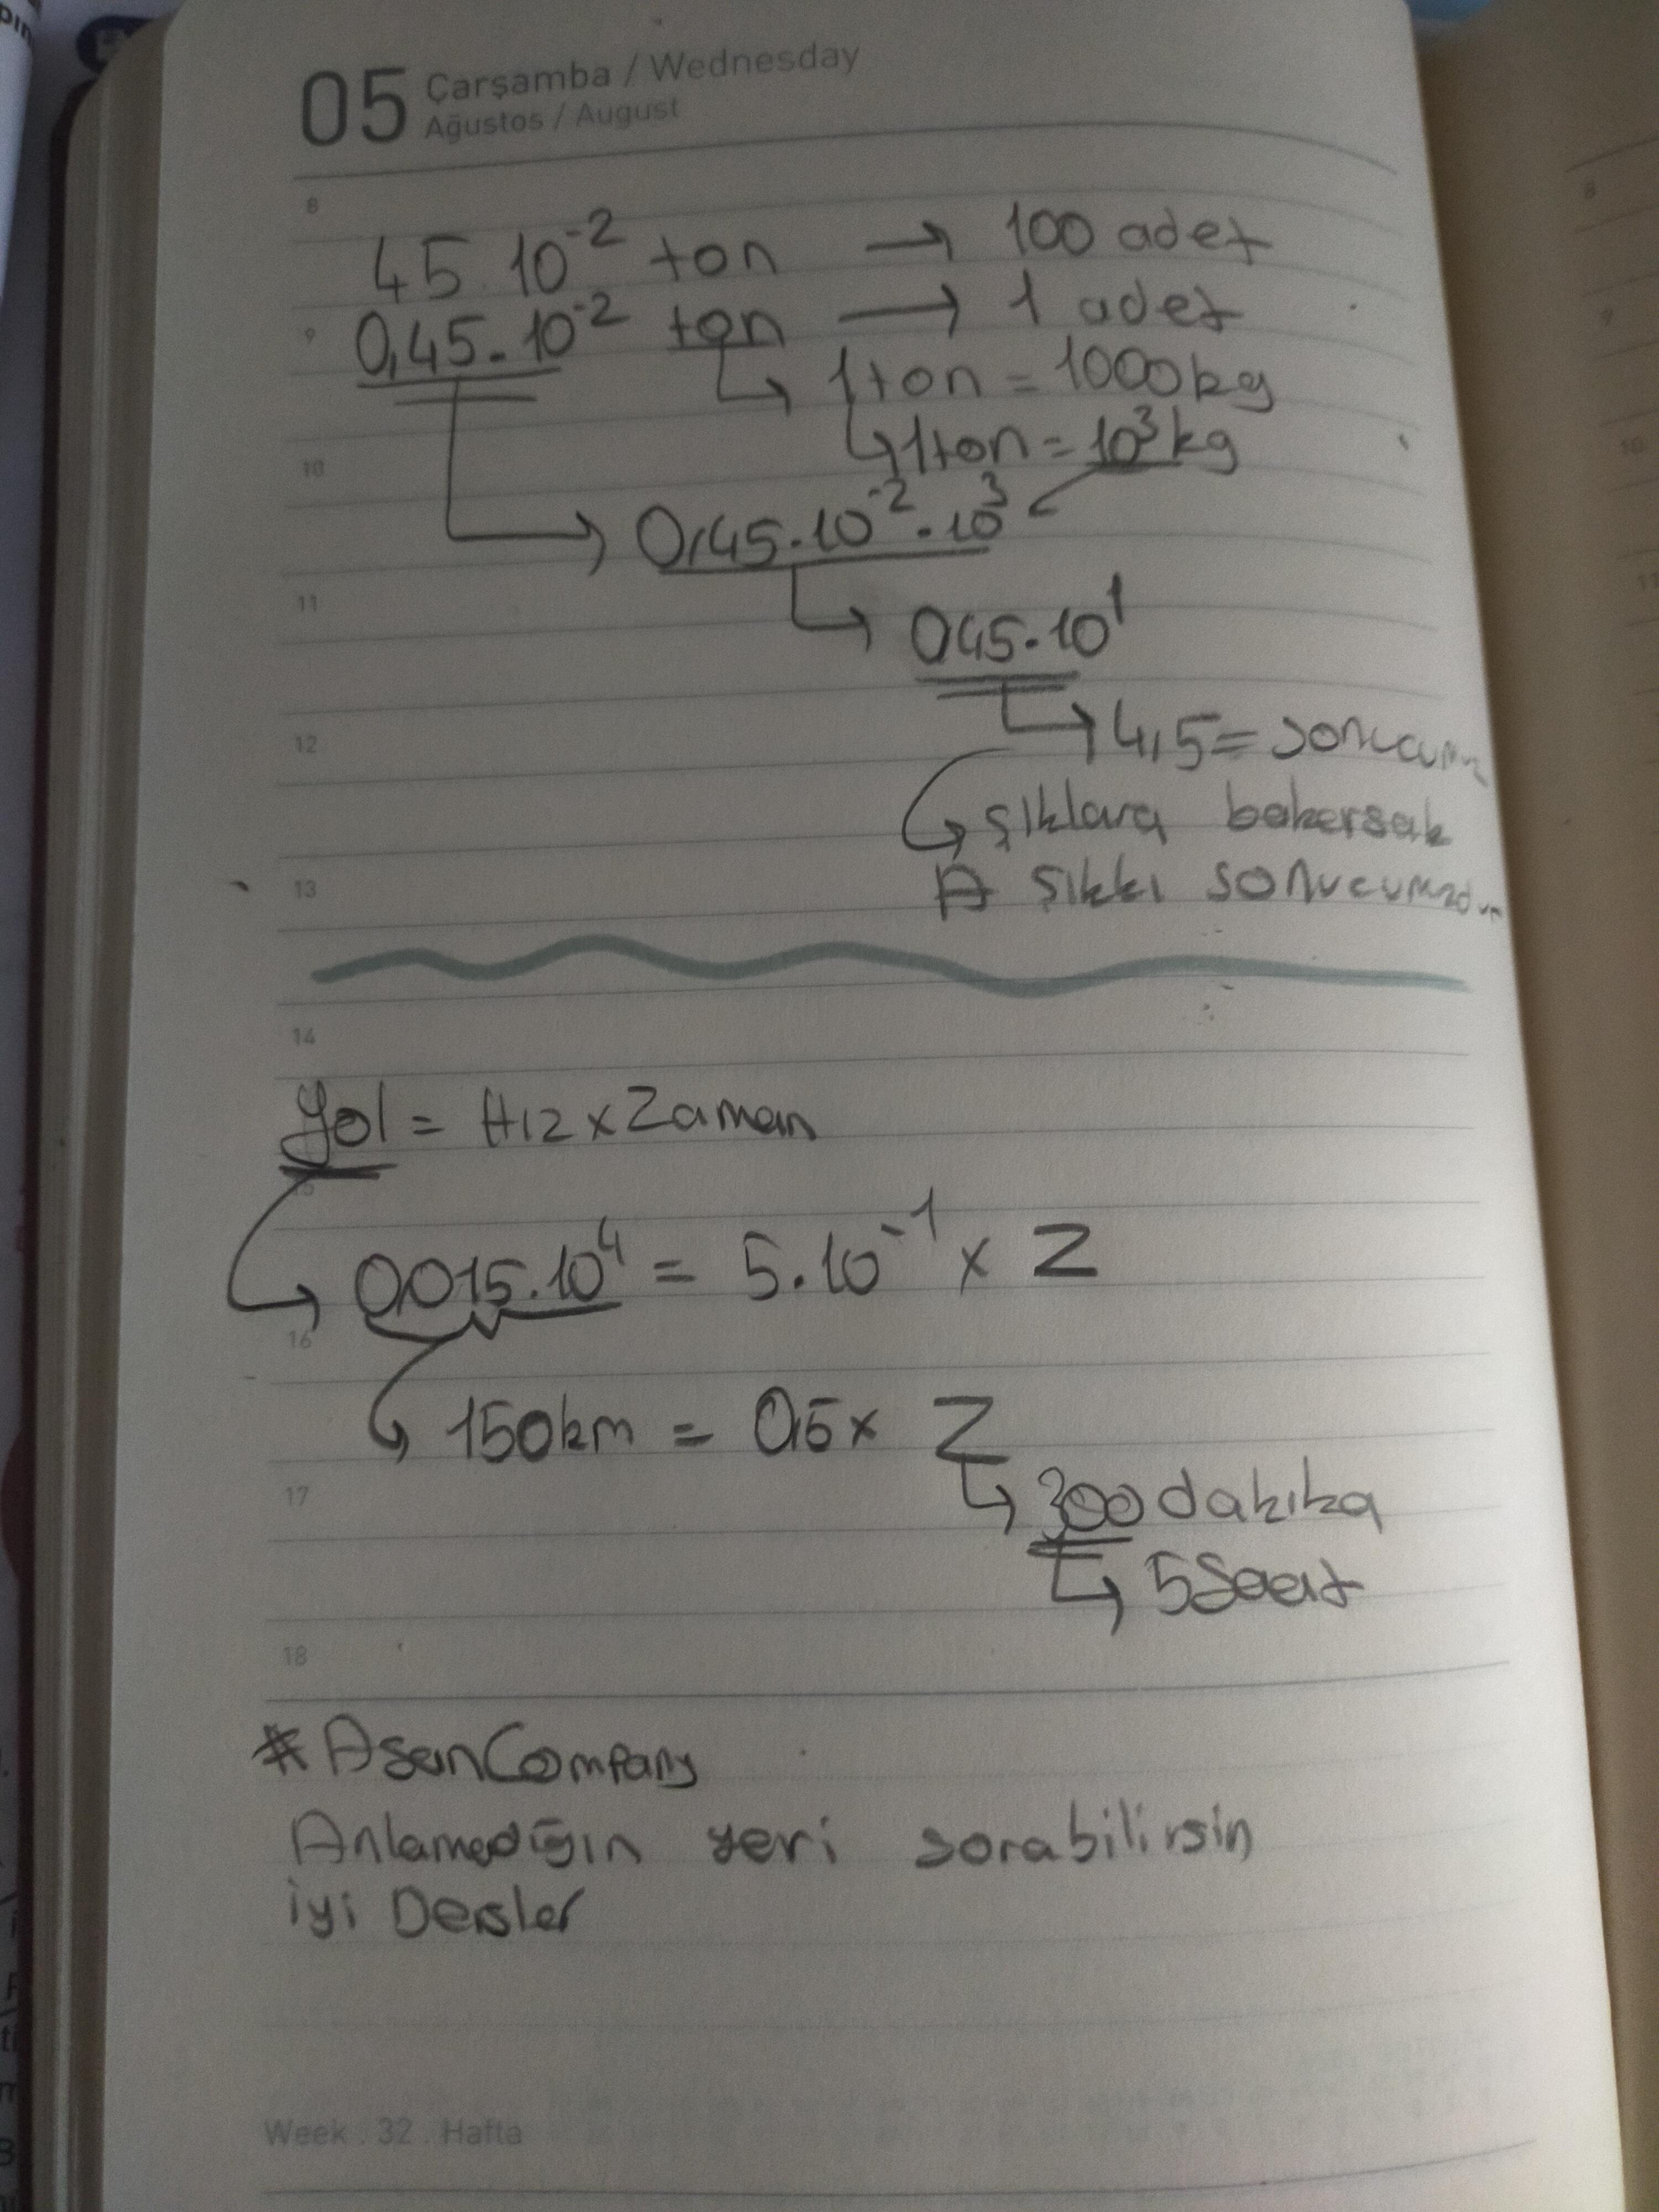 05 Çarşamba / Wednesday
Ağustos / August
8
45 10⁻² ton → 100 adet
9
0,45.10⁻² ton → 1 adet
1ton = 1000kg
1ton = 10³kg
10
0,45.10⁻².10³
11
0,45.10¹
12
4,5 = sonucumuz
şıklara bakarsak
13
A şıkkı sonucumuzdur
14
Yol = Hız x Zaman
15
0,015.10⁴ = 5.10⁻¹ x Z
16
150km = 0,5 x Z
17
300 dakika
5 Saat
18
#AsenCompany
Anlamadığın yeri sorabilirsin
iyi Dersler
Week . 32 . Hafta
8
9
10
11